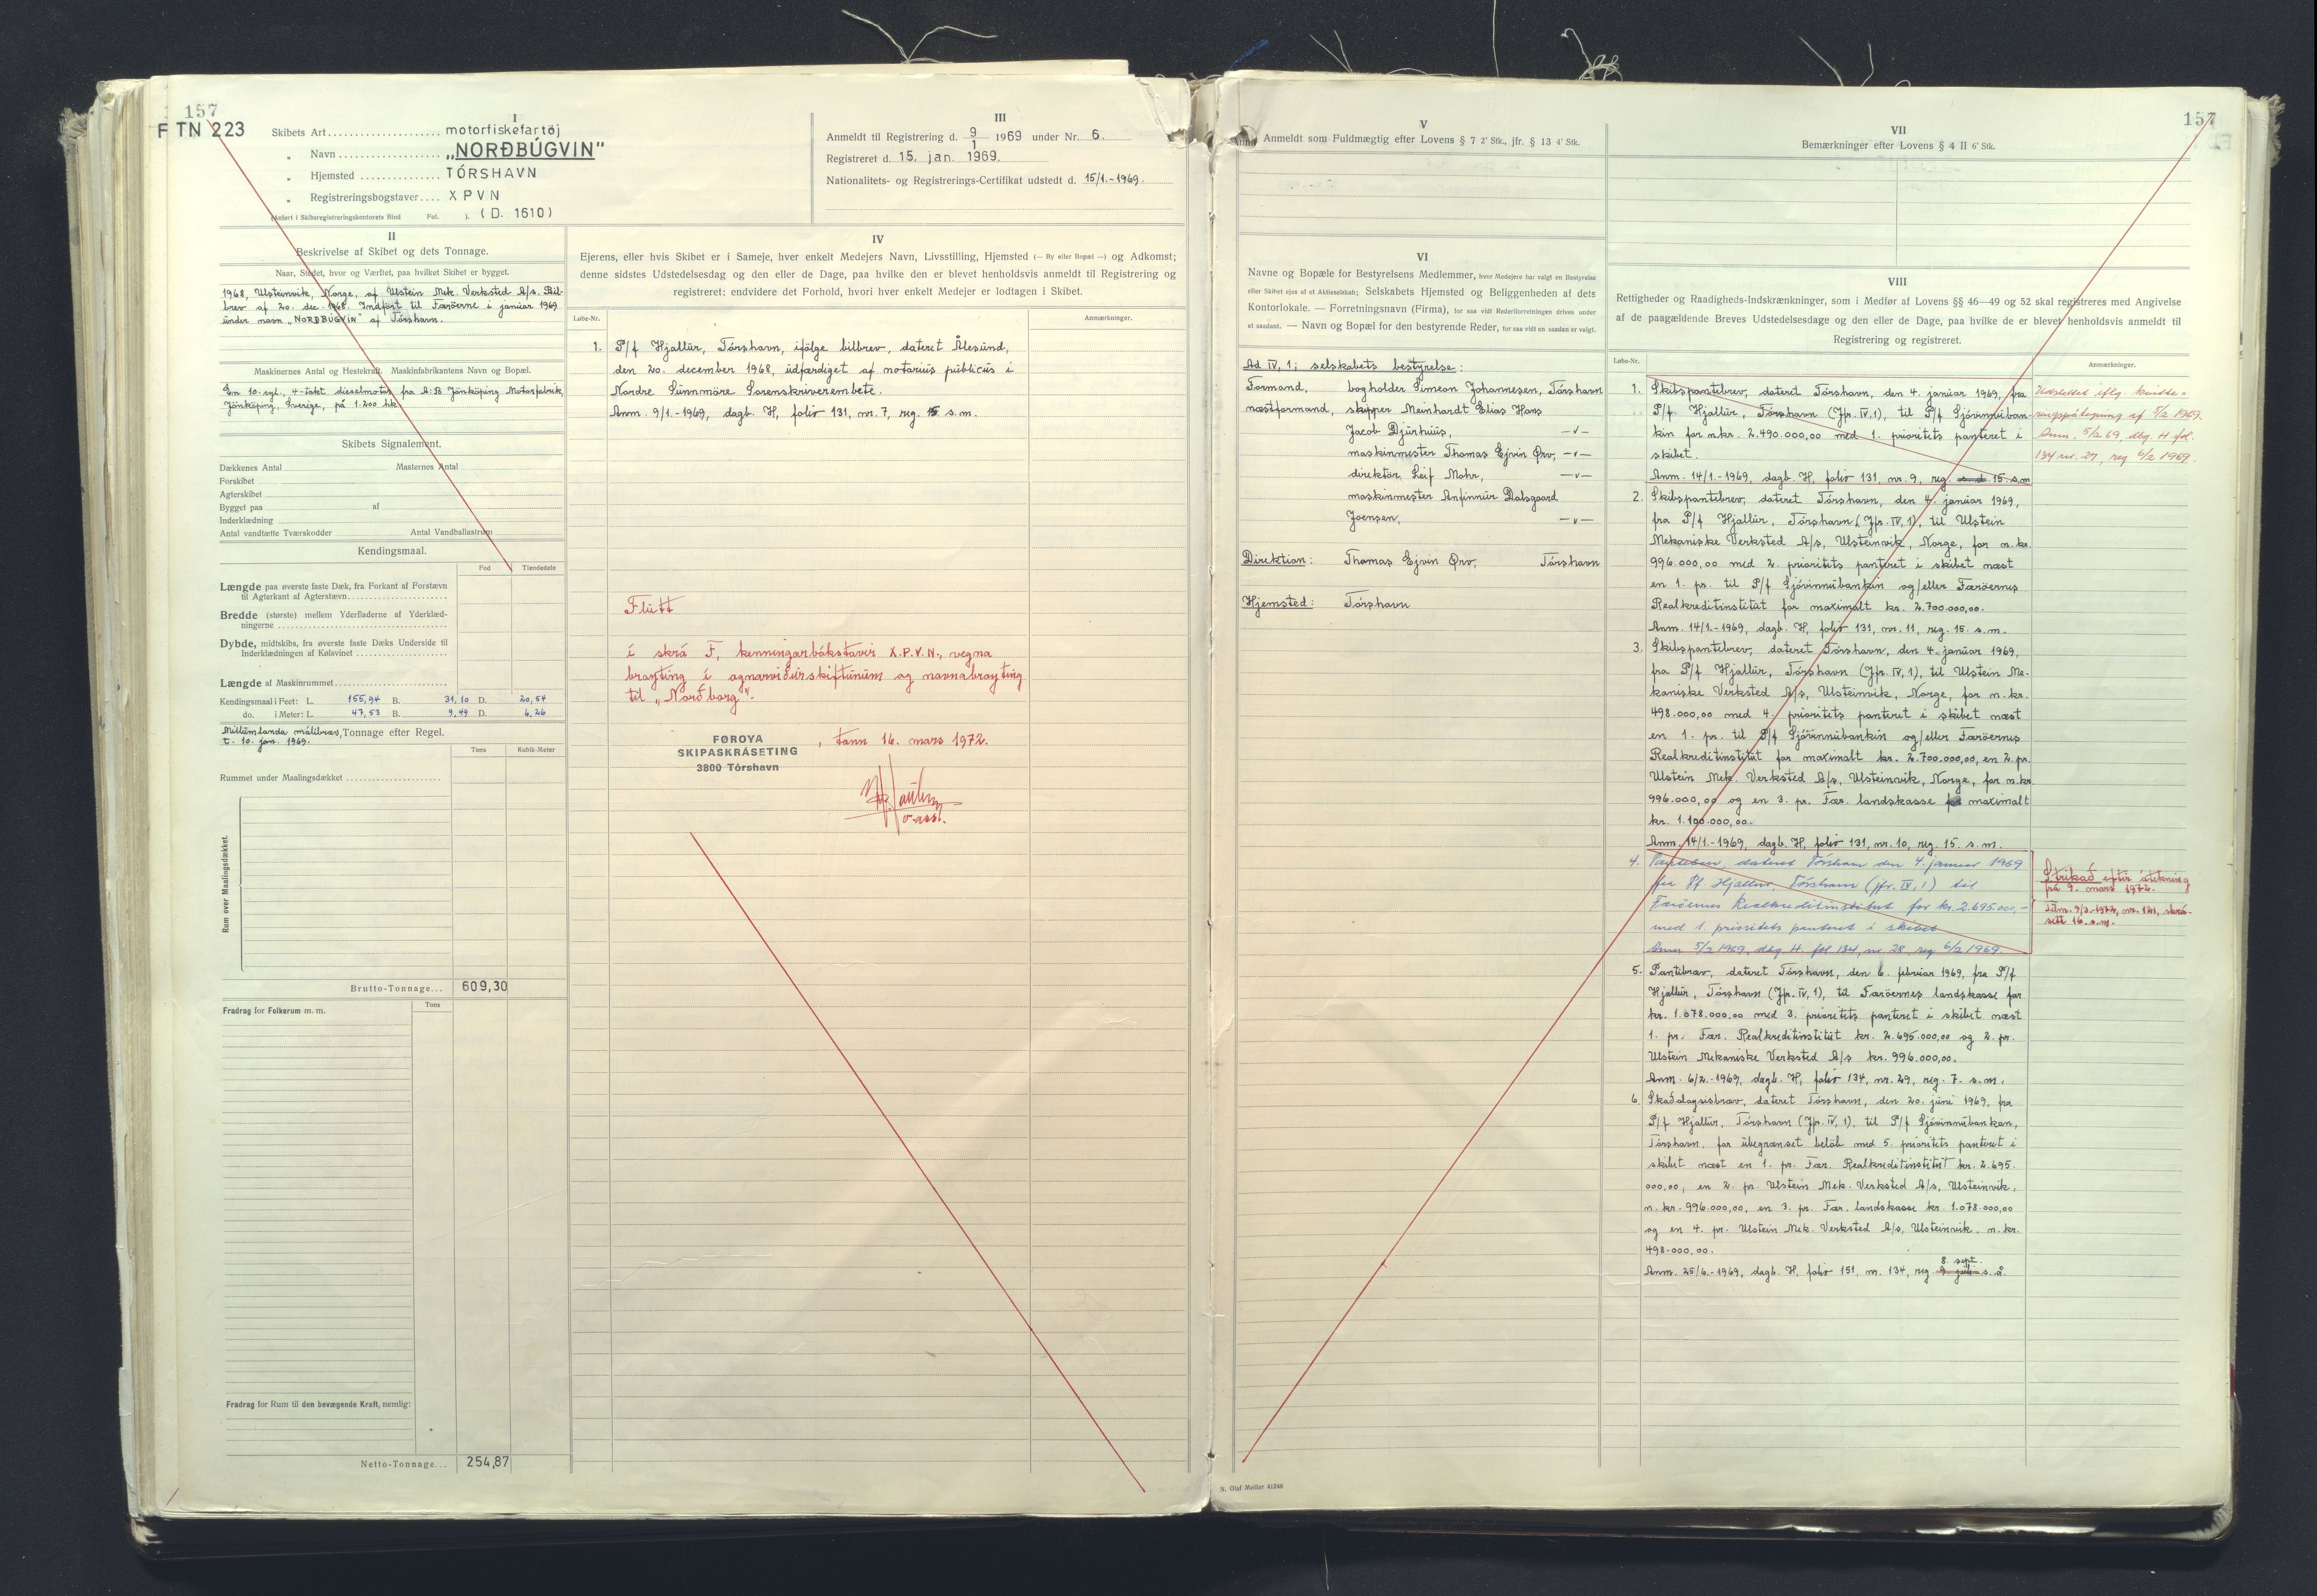 157
FTN 223
I
Skibets Art .................... motorfiskefartöj
„ Navn .................... „NORÐBÚGVIN”
„ Hjemsted ............... TÓRSHAVN
„ Registreringsbogstaver.... XPVN
(Anført i Skibsregistreringskontorets Bind Fol. ). (D. 1610)
III
Anmeldt til Registrering d. 9/1 1969 under Nr. 6.
Registreret d. 15. jan. 1969.
Nationalitets- og Registrerings-Certifikat udstedt d. 15/1.-1969.
II
Beskrivelse af Skibet og dets Tonnage.
Naar, Stedet, hvor og Værftet, paa hvilket Skibet er bygget.
1968, Ulsteinvik, Norge, af Ulstein Mek. Verksted A/s. Bil-
brev af 20. dec. 1968. Indført til Færöerne i januar 1969
under navn „NORÐBÚGVIN” af Tórshavn.
Maskinernes Antal og Hestekraft. Maskinfabrikantens Navn og Bopæl.
En 10-cyl., 4-takt dieselmotor fra A:B Jönköping Motorfabrik,
Jönköping, Sverige, på 1.200 hk
Skibets Signalement.
Dækkenes Antal Masternes Antal
Forskibet
Agterskibet
Bygget paa af
Inderklædning
Antal vandtætte Tværskodder Antal Vandballastrum
Kendingsmaal.
Fod Tiendedele
Længde paa øverste faste Dæk, fra Forkant af Forstævn
til Agterkant af Agterstævn
Bredde (største) mellem Yderfladerne af Yderklæd-
ningerne
Dybde, midtskibs, fra øverste faste Dæks Underside til
Inderklædningen af Kølsvinet
Længde af Maskinrummet
Kendingsmaal i Feet: L. 155,94 B. 31,10 D. 20,54
do. i Meter: L. 47,53 B. 9,49 D. 6,26
Millumlanda málibræv, Tonnage efter Regel.
t. 10. jan. 1969.
Tons Kubik-Meter
Rummet under Maalingsdækket
Rum over Maalingsdækket.
Brutto-Tonnage... 609,30
Tons
Fradrag for Folkerum m. m.
Fradrag for Rum til den bevægende Kraft, nemlig:
Netto-Tonnage... 254,87
IV
Ejerens, eller hvis Skibet er i Sameje, hver enkelt Medejers Navn, Livsstilling, Hjemsted (— By eller Bopæl —) og Adkomst;
denne sidstes Udstedelsesdag og den eller de Dage, paa hvilke den er blevet henholdsvis anmeldt til Registrering og
registreret: endvidere det Forhold, hvori hver enkelt Medejer er lodtagen i Skibet.
Løbe-Nr. Anmærkninger.
1. P/f Hjallur, Tórshavn, ifølge bilbrev, dateret Ålesund,
den 20. december 1968, udfærdiget af notarius publicus i
Nordre Sunnmöre Sorenskriverembete.
Anm. 9/1.-1969, dagb. H, folio 131, nr. 7, reg. 15 s.m.
Flutt
í skrá F, kenningarbókstavir X.P.V.N., vegna
broyting í ognarviðurskiftunum og navnabroyting
til „Norðborg”.
FØROYA
SKIPASKRÁSETING
3800 Tórshavn
, tann 16. mars 1972.
V
Anmeldt som Fuldmægtig efter Lovens § 7 2' Stk., jfr. § 13 4' Stk.
VI
Navne og Bopæle for Bestyrelsens Medlemmer, hvor Medejere har valgt en Bestyrelse
eller Skibet ejes af et Aktieselskab; Selskabets Hjemsted og Beliggenheden af dets
Kontorlokale. — Forretningsnavn (Firma), for saa vidt Rederiforretningen drives under
et saadant. — Navn og Bopæl for den bestyrende Reder, for saa vidt en saadan er valgt.
Ad IV, 1; selskabets bestyrelse:
Formand, bogholder Simeon Johannesen, Tórshavn
næstformand, skipper Meinhardt Elias Hans
Jacob Djurhuus, —v—
maskinmester Thomas Ejvin Ørv, —v—
direktör Leif Mohr, —v—
maskinmester Anfinnur Dalsgaard
Joensen, —v—
Direktion: Thomas Ejvin Ørv, Tórshavn
Hjemsted: Tórshavn
N. Olaf Møller 41346
157
VII
Bemærkninger efter Lovens § 4 II 6' Stk.
VIII
Rettigheder og Raadigheds-Indskrænkninger, som i Medfør af Lovens §§ 46—49 og 52 skal registreres med Angivelse
af de paagældende Breves Udstedelsesdage og den eller de Dage, paa hvilke de er blevet henholdsvis anmeldt til
Registrering og registreret.
Løbe-Nr. Anmærkninger.
1. Skibspantebrev, dateret Tórshavn, den 4. januar 1969, fra
P/f Hjallur, Tórshavn (Jfr. IV, 1), til P/f Sjóvinnuban-
kin for n.kr. 2.490.000,00 med 1. prioritets panteret i
skibet.
Anm. 14/1.-1969, dagb. H, folio 131, nr. 9, reg. s.d. 15. s.m.
Udslettet iflg. kvitte-
ringspåtegning af 5/2 1969.
Anm. 5/2 69, dbg. H. fol.
134 nr. 27, reg 6/2 1969.
2. Skibspantebrev, dateret Tórshavn, den 4. januar 1969,
fra P/f Hjallur, Tórshavn (Jfr. IV, 1), til Ulstein
Mekaniske Verksted A/s, Ulsteinvik, Norge, for n.kr.
996.000,00 med 2. prioritets panteret i skibet næst
en 1. pr. til P/f Sjóvinnubankin og/eller Færöernes
Realkreditinstitut for maximalt kr. 2.700.000,00.
Anm. 14/1.-1969, dagb. H, folio 131, nr. 11, reg. 15. s.m.
3. Skibspantebrev, dateret Tórshavn, den 4. januar 1969,
fra P/f Hjallur, Tórshavn (Jfr. IV, 1), til Ulstein Me-
kaniske Verksted A/s, Ulsteinvik, Norge, for n.kr.
498.000,00 med 4. prioritets panteret i skibet næst
en 1. pr. til P/f Sjóvinnubankin og/eller Færöernes
Realkreditinstitut for maximalt kr. 2.700.000,00, en 2. pr.
Ulstein Mek. Verksted A/s, Ulsteinvik, Norge, for n.kr.
996.000,00 og en 3. pr. Fær. landskasse for maximalt
kr. 1.100.000,00.
Anm. 14/1.-1969, dagb. H, folio 131, nr. 10, reg. 15. s.m.
4. Pantebrev, dateret Tórshavn den 4. januar 1969
fra P/f Hjallur, Tórshavn (jfr. IV, 1) til
Færöernes Realkreditinstitut for kr. 2.695.000,-
med 1. prioritets panteret i skibet
Anm 5/2 1969, dbg. H. fol 134, nr 28, reg 6/2 1969
Strikað eftir átekning
frá 9. mars 1972.
Tilm. 9/3-1972, nr. 121, skrá-
sett 16. s.m.
5. Pantibræv, dateret Tórshavn, den 6. februar 1969, fra P/f
Hjallur, Tórshavn (Jfr. IV, 1), til Færöernes landskasse for
kr. 1.078.000,00 med 3. prioritets panteret i skibet næst
1. pr. Fær. Realkreditinstitut kr. 2.695.000,00 og 2. pr.
Ulstein Mekaniske Verksted A/s kr. 996.000,00.
Anm. 6/2.-1969, dagb. H, folio 134, nr. 29, reg. 7. s.m.
6. Skaðsloysisbræv, dateret Tórshavn, den 20. juni 1969, fra
P/f Hjallur, Tórshavn (Jfr. IV, 1), til P/f Sjóvinnubankan,
Tórshavn, for ubegrænset belöb med 5. prioritets panteret i
skibet næst en 1. pr. Fær. Realkreditinstitut kr. 2.695.
000,00, en 2. pr. Ulstein Mek. Verksted A/s, Ulsteinvik,
n.kr. 996.000,00, en 3. pr. Fær. landskasse kr. 1.078.000,00
og en 4. pr. Ulstein Mek. Verksted A/s, Ulsteinvik, n.kr.
498.000,00.
8. sept.
Anm. 25/6.-1969, dagb. H, folio 151, nr. 134, reg. 9. juli s.å.